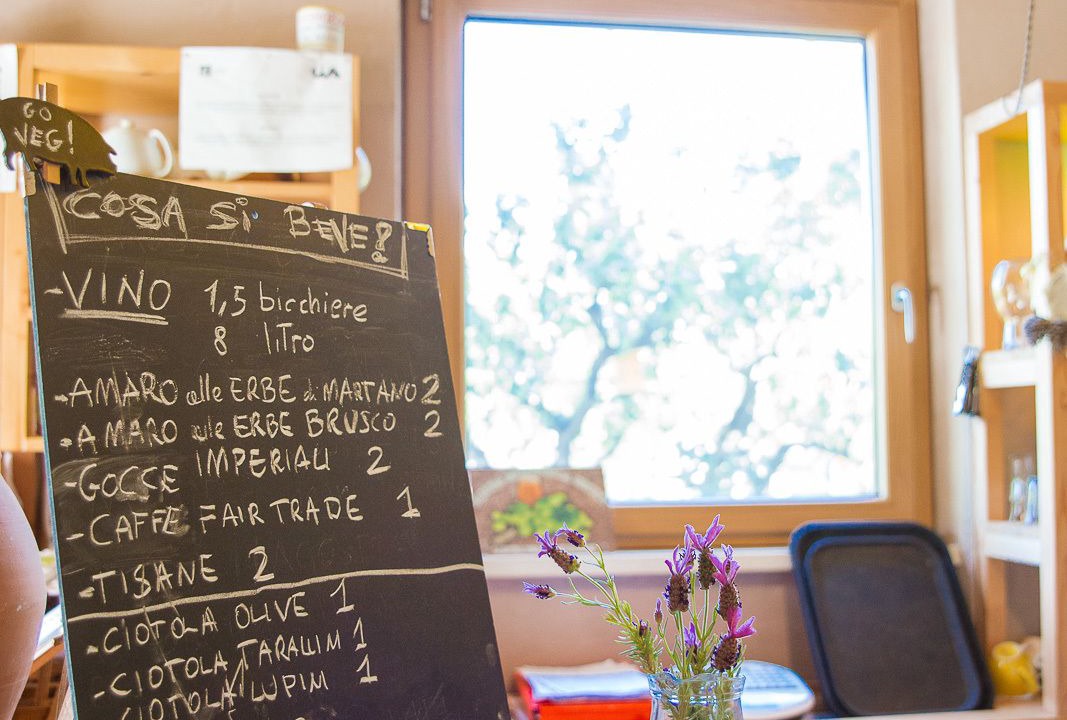 GO
VEG!
COSA SI BEVE?
-VINO 1,5 bicchiere
8 litro
-AMARO alle ERBE di MARTANO 2
-AMARO alle ERBE BRUSCO 2
-GOCCE IMPERIALI 2
-CAFFE FAIR TRADE 1
-TISANE 2
-CIOTOLA OLIVE 1
-CIOTOLA TARALLINI 1
CIOTOLA LUPINI 1